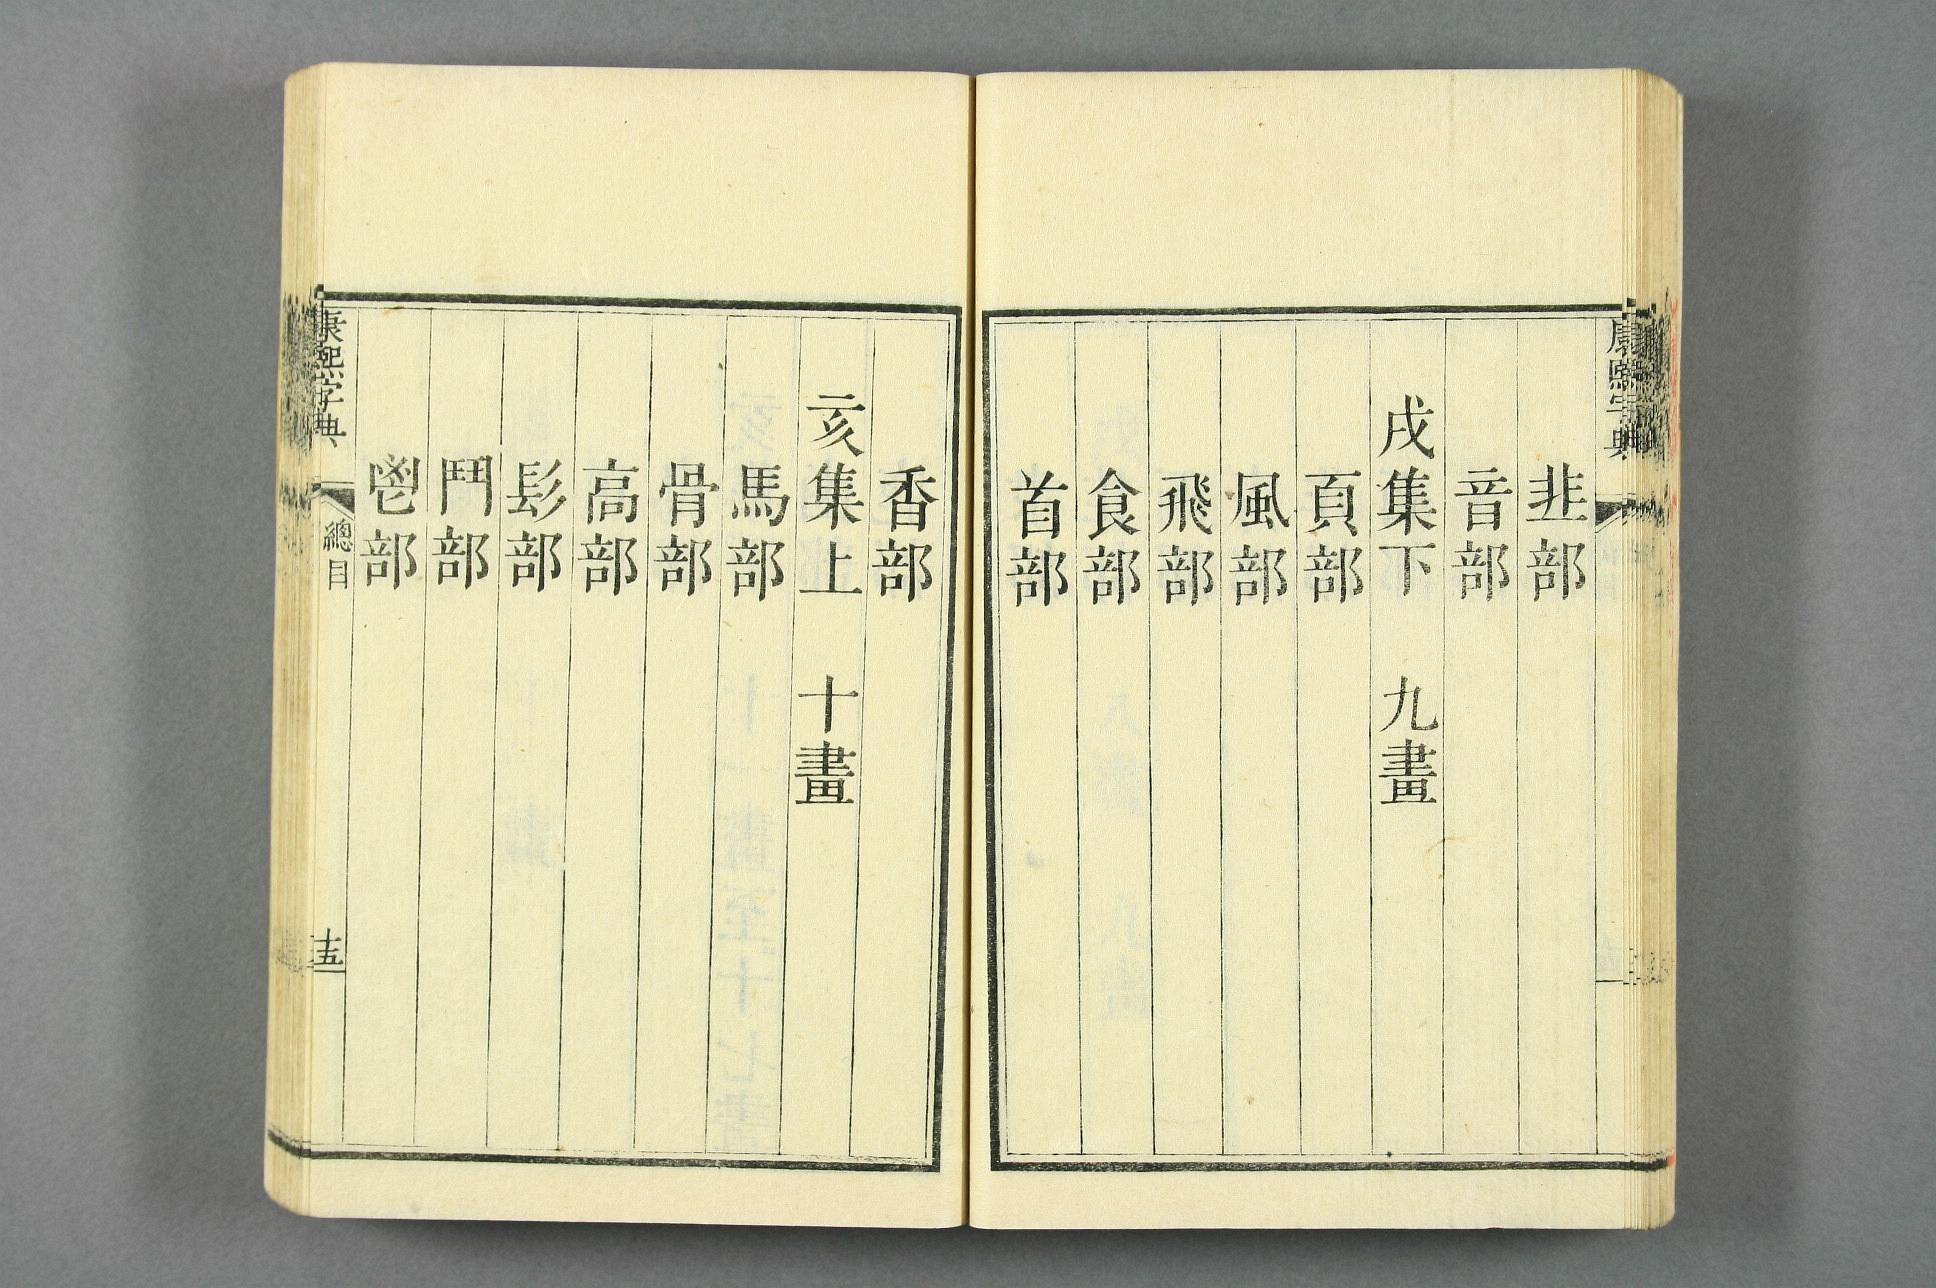 康熙字典
韭部
音部
戌集下 九畫
頁部
風部
飛部
食部
首部
香部
亥集上 十畫
馬部
骨部
高部
髟部
鬥部
鬯部
康熙字典 總目 十五